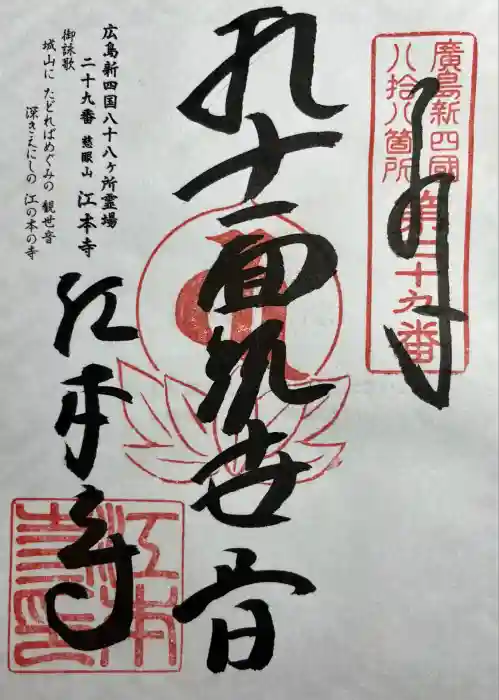 廣島新四國
八拾八箇所
第二十九番
奉拝
十一面観世音
江本寺
広島新四国八十八ヶ所霊場
二十九番 慈眼山 江本寺
御詠歌
城山に たどればめぐみの 観世音
深きえにしの 江の本の寺